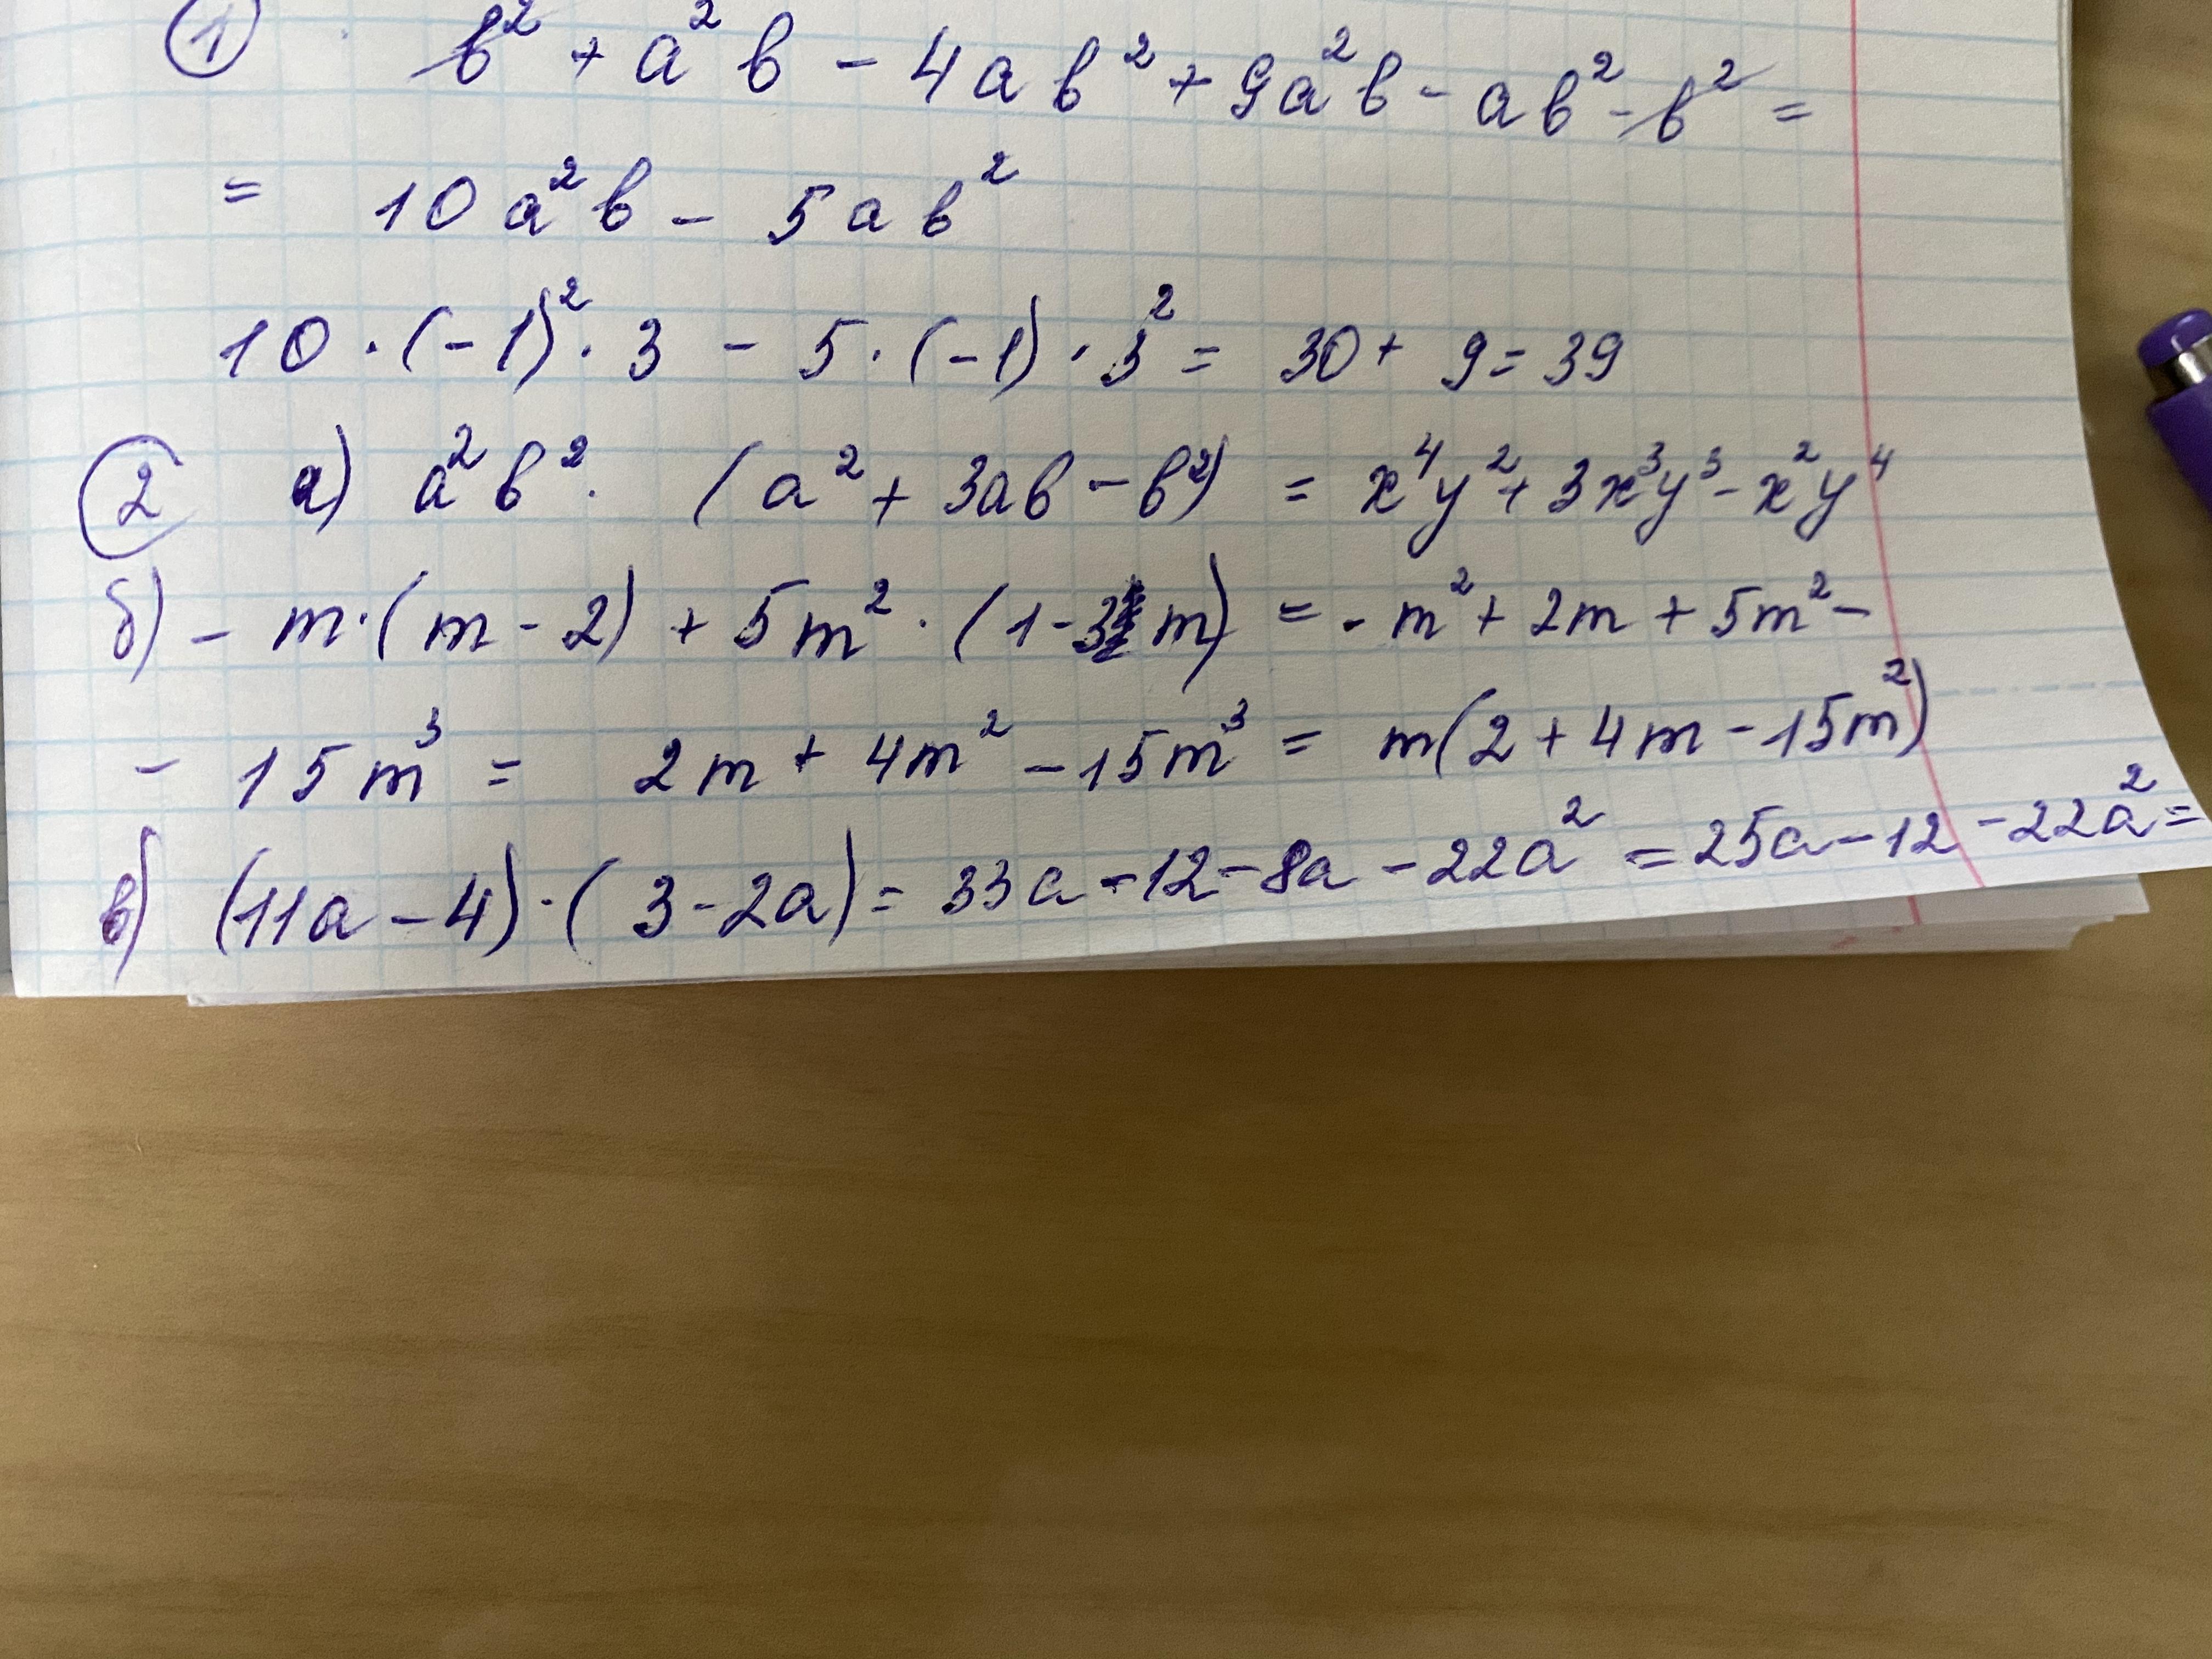 ① b² + a²b - 4ab² + 9a²b - ab² - b² =
= 10a²b - 5ab²
10 · (-1)² · 3 - 5 · (-1) · 3² = 30 + 9 = 39
② а) a²b² · (a² + 3ab - b²) = x⁴y² + 3x³y³ - x²y⁴
б) - m · (m - 2) + 5m² · (1 - 3m) = - m² + 2m + 5m² -
- 15m³ = 2m + 4m² - 15m³ = m(2 + 4m - 15m²)
в) (11a - 4) · (3 - 2a) = 33a - 12 - 8a - 22a² = 25a - 12 - 22a² =